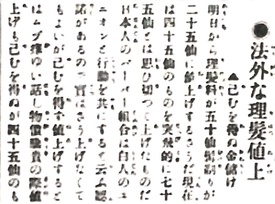 ●法外な理髪値上
▲己むを得ぬ金儲け
明日から理髪料が五十仙剃りが
二十五仙に値上げするさうだ現在
は四十五仙のものを突飛的に七十
五仙とは思ひ切つて上げたものだ
日本人のバーバー組合は白人のユ
ニオンと行動を共にすると云ふ認
諾があるので實はさう上げなくて
もよいが己むを得ず値上げすると
はムヅ痒ゆい話し物價騰貴の際値
上げも己むを得ぬが四十五仙のも